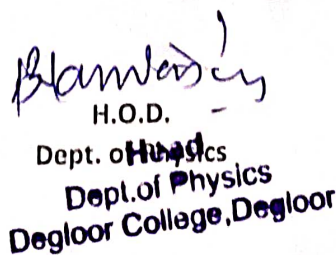 H.O.D.
Dept. of Physics
Head
Dept.of Physics
Degloor College,Degloor